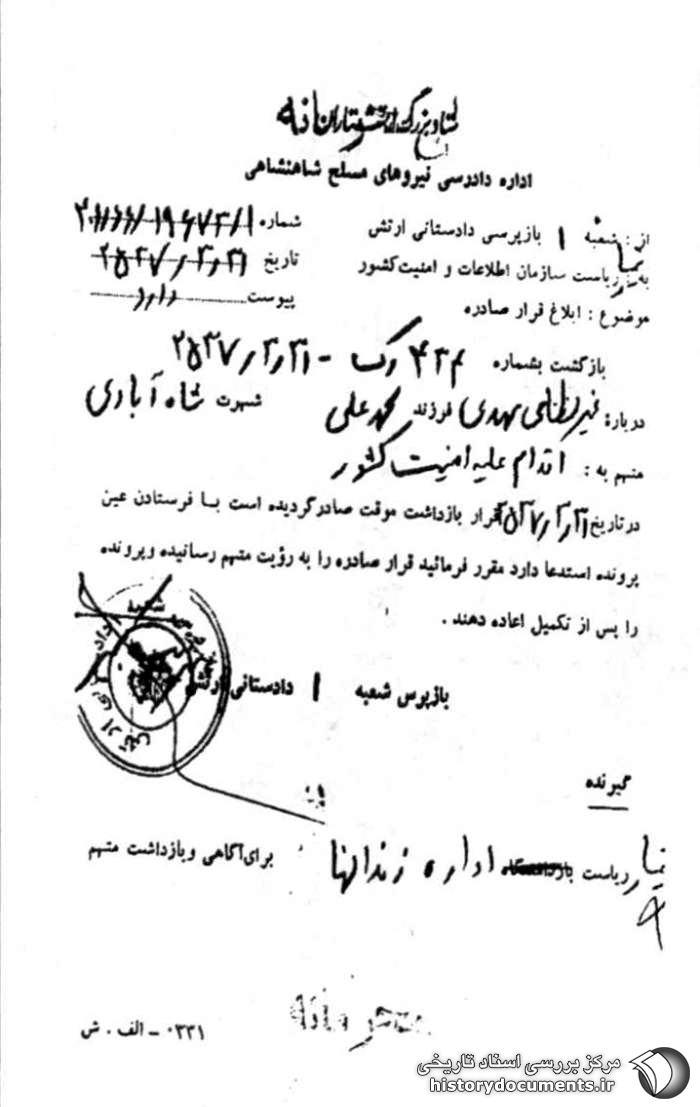 ستاد بزرگ ارتشتاران
اداره دادرسی نیروهای مسلح شاهنشاهی
از : شعبه ۱ بازپرسی دادستانی ارتش
شماره
به : ریاست سازمان اطلاعات و امنیت کشور
تاریخ ۲۵۳۷/۳/۳۱
موضوع : ابلاغ قرار صادره
پیوست دارد
بازگشت بشماره ۴۲۴ - ۲۵۳۷/۳/۳۱
درباره غیرنظامی مهدی فرزند محمد علی شهرت شاه آبادی
متهم به : اقدام علیه امنیت کشور
در تاریخ ۲۵۳۷/۳/۳۱ قرار بازداشت موقت صادر گردیده است با فرستادن عین
پرونده استدعا دارد مقرر فرمائید قرار صادره را به رؤیت متهم رسانیده و پرونده
را پس از تکمیل اعاده دهند .
بازپرس شعبه ۱ دادستانی ارتش
گیرنده
ریاست اداره زندانها برای آگاهی و بازداشت متهم
محرمانه
۰۳۳۱ - الف . ش
مرکز بررسی اسناد تاریخی
historydocuments.ir